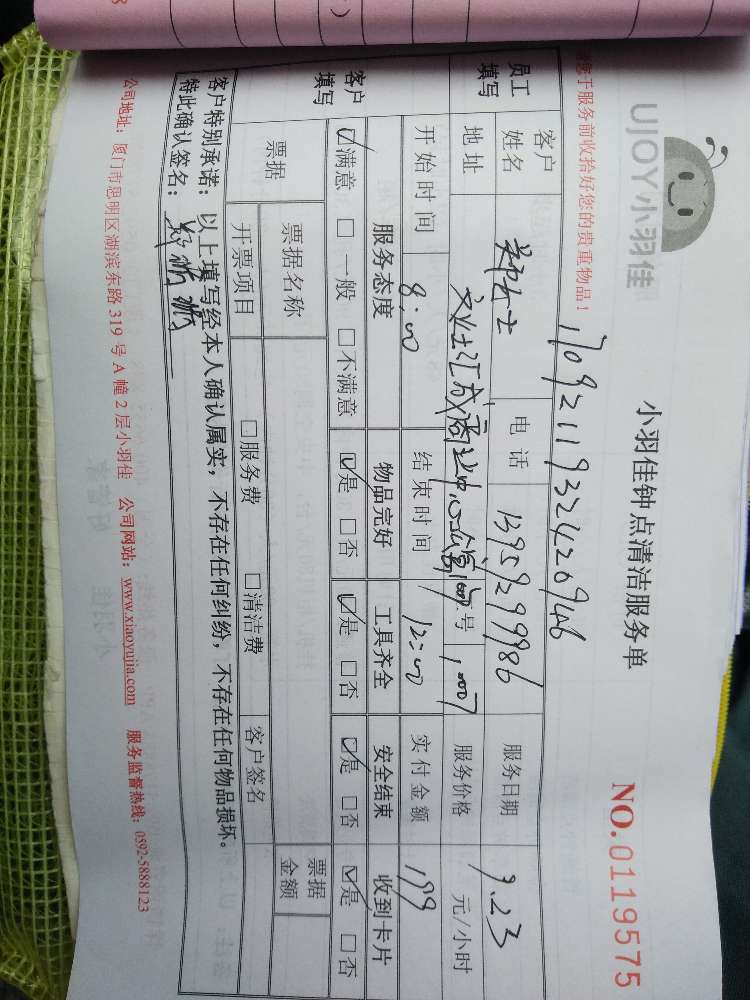 UJOY小羽佳
小羽佳钟点清洁服务单
NO.0119575
于服务前收拾好您的贵重物品!
170921193242094 6
员工填写 客户姓名 郑女士 电话 13959299986 服务日期 9.23
地址 商业中心 号 1007 服务价格 元/小时
开始时间 8:00 结束时间 12:00 实付金额 199
客户填写 服务态度 物品完好 工具齐全 安全结束 收到卡片
☑满意 □一般 □不满意 ☑是 □否 ☑是 □否 ☑是 □否 ☑是 □否
票据 票据名称 票据金额
开票项目 □服务费 □清洁费 客户签名
客户特别承诺: 以上填写经本人确认属实, 不存在任何纠纷, 不存在任何物品损坏。
特此确认签名:
公司地址: 厦门市思明区湖滨东路 319 号 A 幢 2 层小羽佳 公司网站: www.xiaoyujia.com 服务监督热线: 0592-5888123